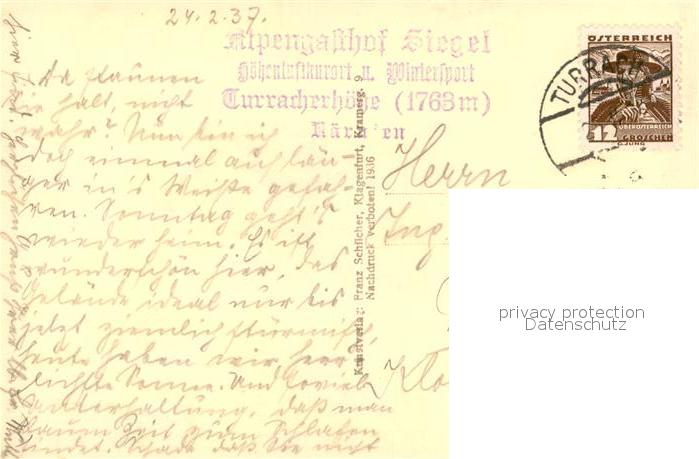 24.2.37.
Alpengasthof Siegel
Höhenluftkurort u. Wintersport
Turracherhöhe (1763 m)
Kärnten
Da staunen
sie halt, nicht
wahr? Nun bin ich
doch einmal auf län-
ger in's Weiße gefah-
ren. Sonntag geht's
wieder heim. Es ist
wunderschön hier, das
Gelände ideal nur bis
jetzt ziemlich stürmisch,
heute haben wir herr-
lichste Sonne. Und soviel
Unterhaltung, daß man
kaum Zeit zum Schlafen
findet. Schade daß Sie nicht
Kunstverlag: Franz Schilcher, Klagenfurt, Kramerg. 9
Nachdruck verboten! 1936
Herrn
Ing.
Klo
ÖSTERREICH
12
OBERÖSTERREICH
GROSCHEN
D. JUNG
TURRACH
privacy protection
Datenschutz